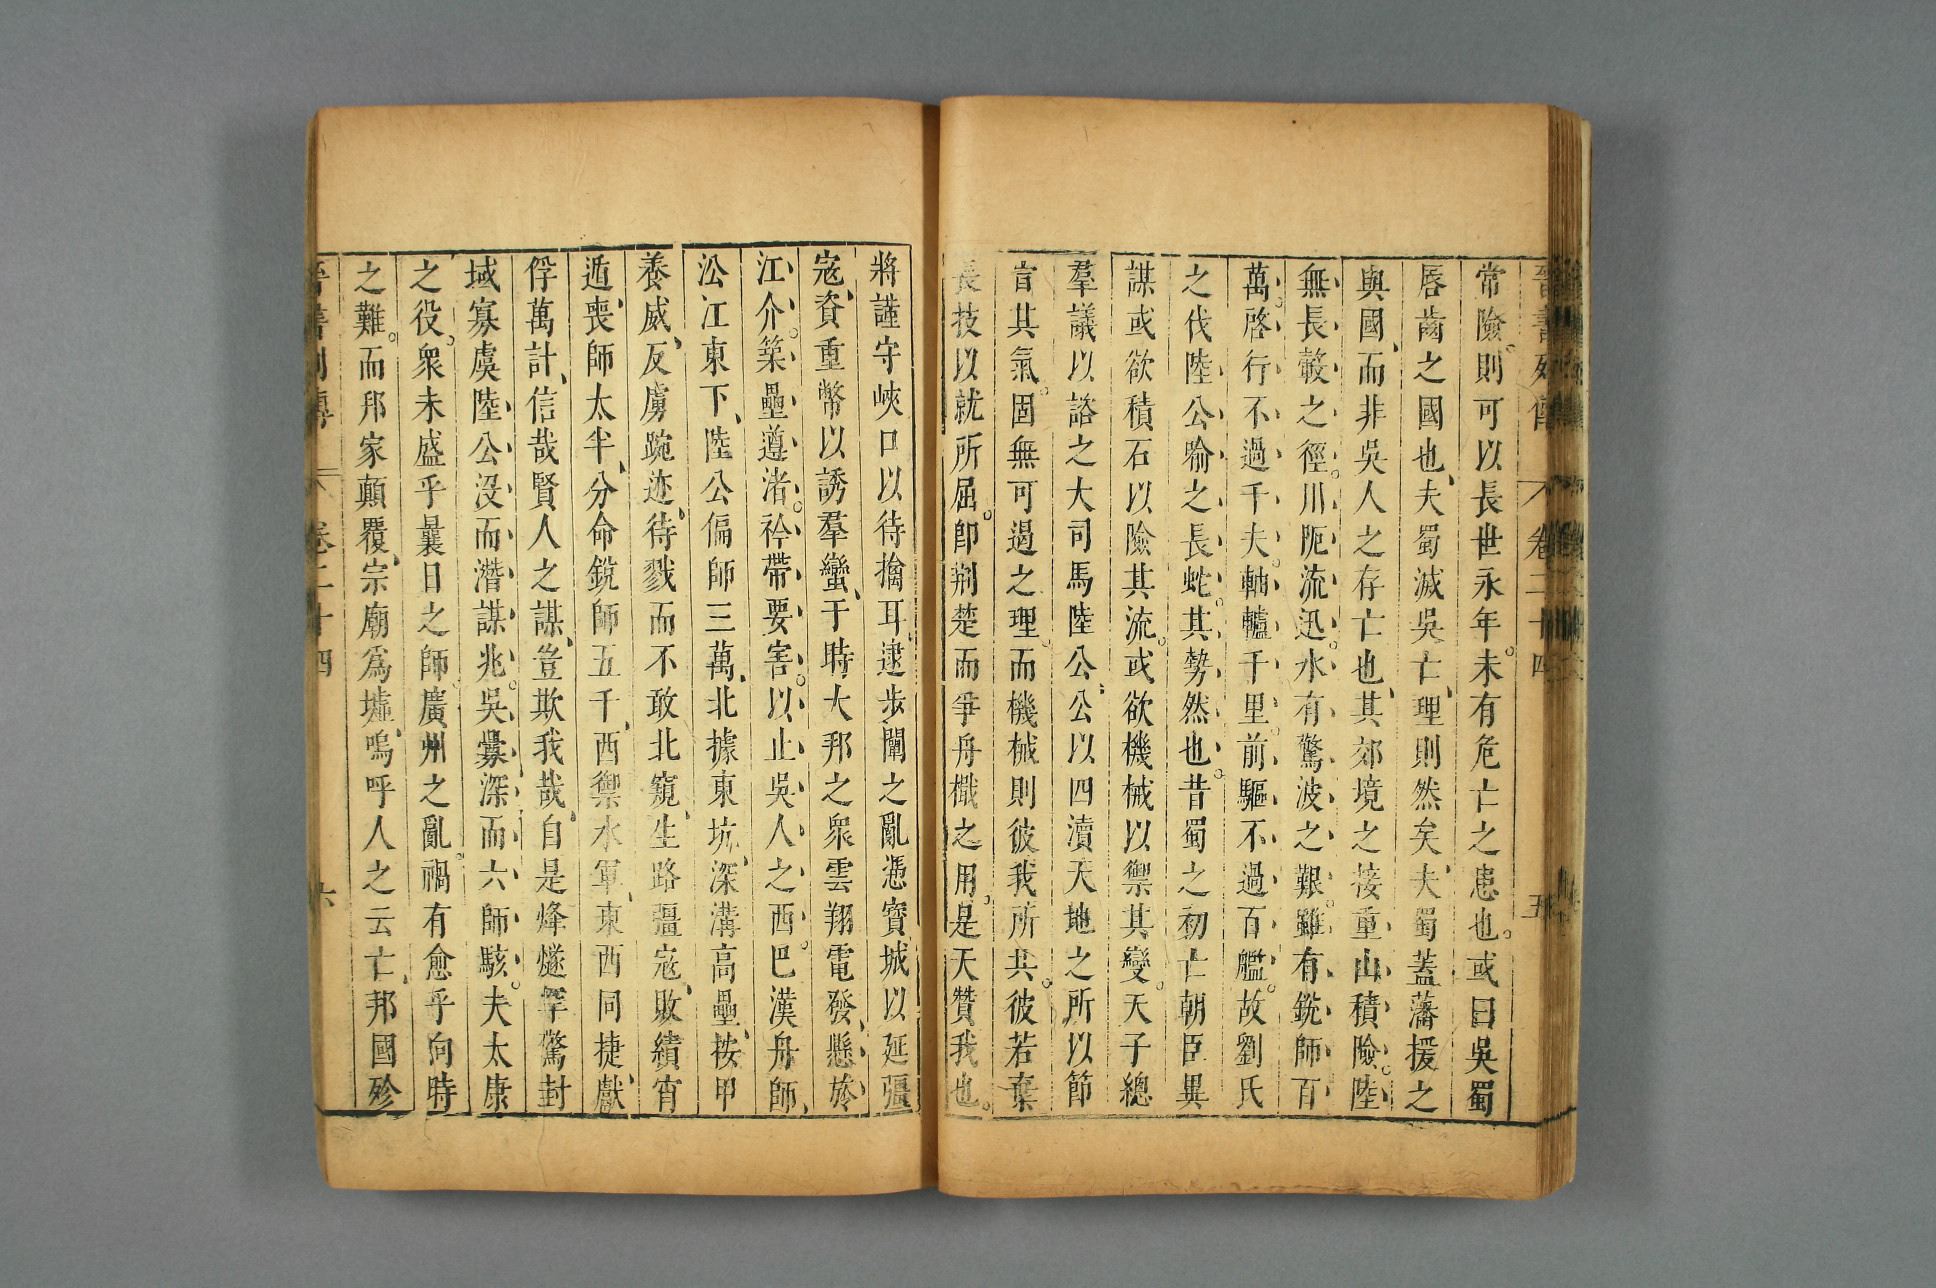 常險則可以長世永年未有危亡之患也或曰吳蜀
唇齒之國也夫蜀滅吳亡理則然矣夫蜀蓋藩援之
與國而非吳人之存亡也其郊境之接重山積險陸
無長轂之徑川阨流迅水有驚波之艱雖有銳師百
萬啓行不過千夫軸轤千里前驅不過百艦故劉氏
之伐陸公喻之長蛇其勢然也昔蜀之初亡朝臣異
謀或欲積石以險其流或欲機械以禦其變天子總
羣議以諮之大司馬陸公公以四瀆天地之所以節
宣其氣固無可遏之理而機械則彼我所共彼若棄
長技以就所屈卽荆楚而爭舟檝之用是天贊我也
將謹守峽口以待擒耳逮步闡之亂憑寳城以延彊
寇資重幣以誘羣蠻于時大邦之衆雲翔電發懸於
江介築壘遵渚衿帶要害以止吳人之西巴漢舟師
沿江東下陸公偏師三萬北據東坑深溝高壘按甲
養威反虜踠迹待戮而不敢北窺生路彊寇敗績宵
遁喪師太半分命銳師五千西禦水軍東西同捷獻
俘萬計信哉賢人之謀豈欺我哉自是烽燧罕驚封
域寡虞陸公沒而潛謀兆吳釁深而六師駭夫太康
之役衆未盛乎曩日之師廣州之亂禍有愈乎向時
之難而邦家顛覆宗廟爲墟嗚呼人之云亡邦國殄
卷二十四 六